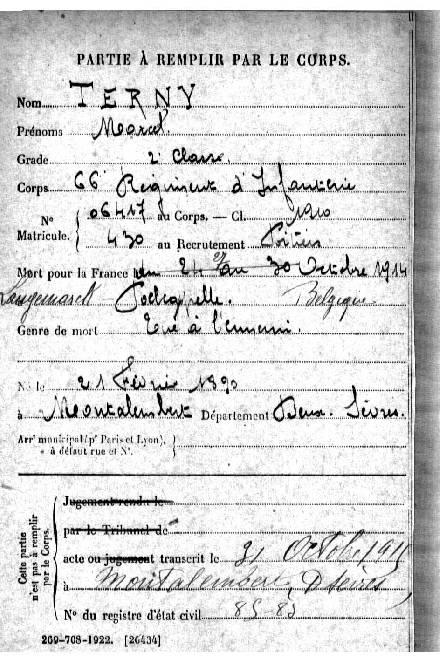 PARTIE À REMPLIR PAR LE CORPS.
Nom TERNY
Prénoms Marcel
Grade 2e Classe.
Corps 66e Régiment d'Infanterie
N° Matricule. { 06417 au Corps. — Cl. 1910
430 au Recrutement Poitiers
Mort pour la France le du 24 au 30 Octobre 1914
27
Langemarck Poelcappelle. Belgique
Genre de mort Tué à l'ennemi.
Né le 21 Février 1890
à Montalembert Département Deux-Sèvres.
Arrt municipal (pr Paris et Lyon), }
à défaut rue et N°.
Cette partie n'est pas à remplir par le Corps.
Jugement rendu le
par le Tribunal de
acte ou jugement transcrit le 31 Octobre 1915
à Montalembert, D Sèvres
N° du registre d'état civil 85-83
269-708-1922. [26434]